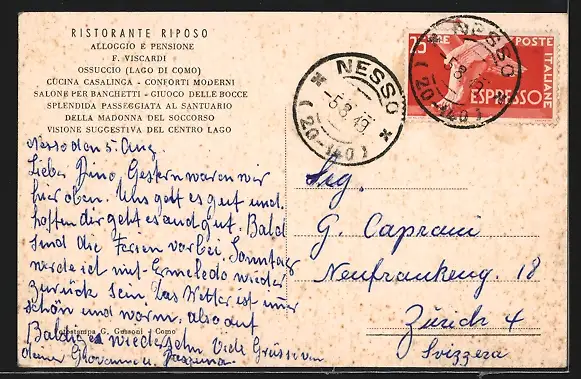 RISTORANTE RIPOSO
ALLOGGIO E PENSIONE
F. VISCARDI
OSSUCCIO (LAGO DI COMO)
CUCINA CASALINGA - CONFORTI MODERNI
SALONE PER BANCHETTI - GIUOCO DELLE BOCCE
SPLENDIDA PASSEGGIATA AL SANTUARIO
DELLA MADONNA DEL SOCCORSO
VISIONE SUGGESTIVA DEL CENTRO LAGO
Nesso den 5. Aug.
Lieber Dino. Gestern waren wir
hier oben. Uns geht es gut und
hoffen dir geht es auch gut. Bald
sind die Ferien vorbei. Sonntag
werde ich mit wieder
zurück sein. Das Wetter ist immer
schön und warm, also auf
Baldiges wiedersehn Viele Grüsse von
deiner Giovanna u.
G. Gussoni - Como
NESSO
5.8.49
(20-140)
25 LIRE POSTE ITALIANE
ESPRESSO
NESSO
5.8.49
(20-140)
Sig.
G. Caprani
Neufrankeng. 18
Zürich 4
Svizzera